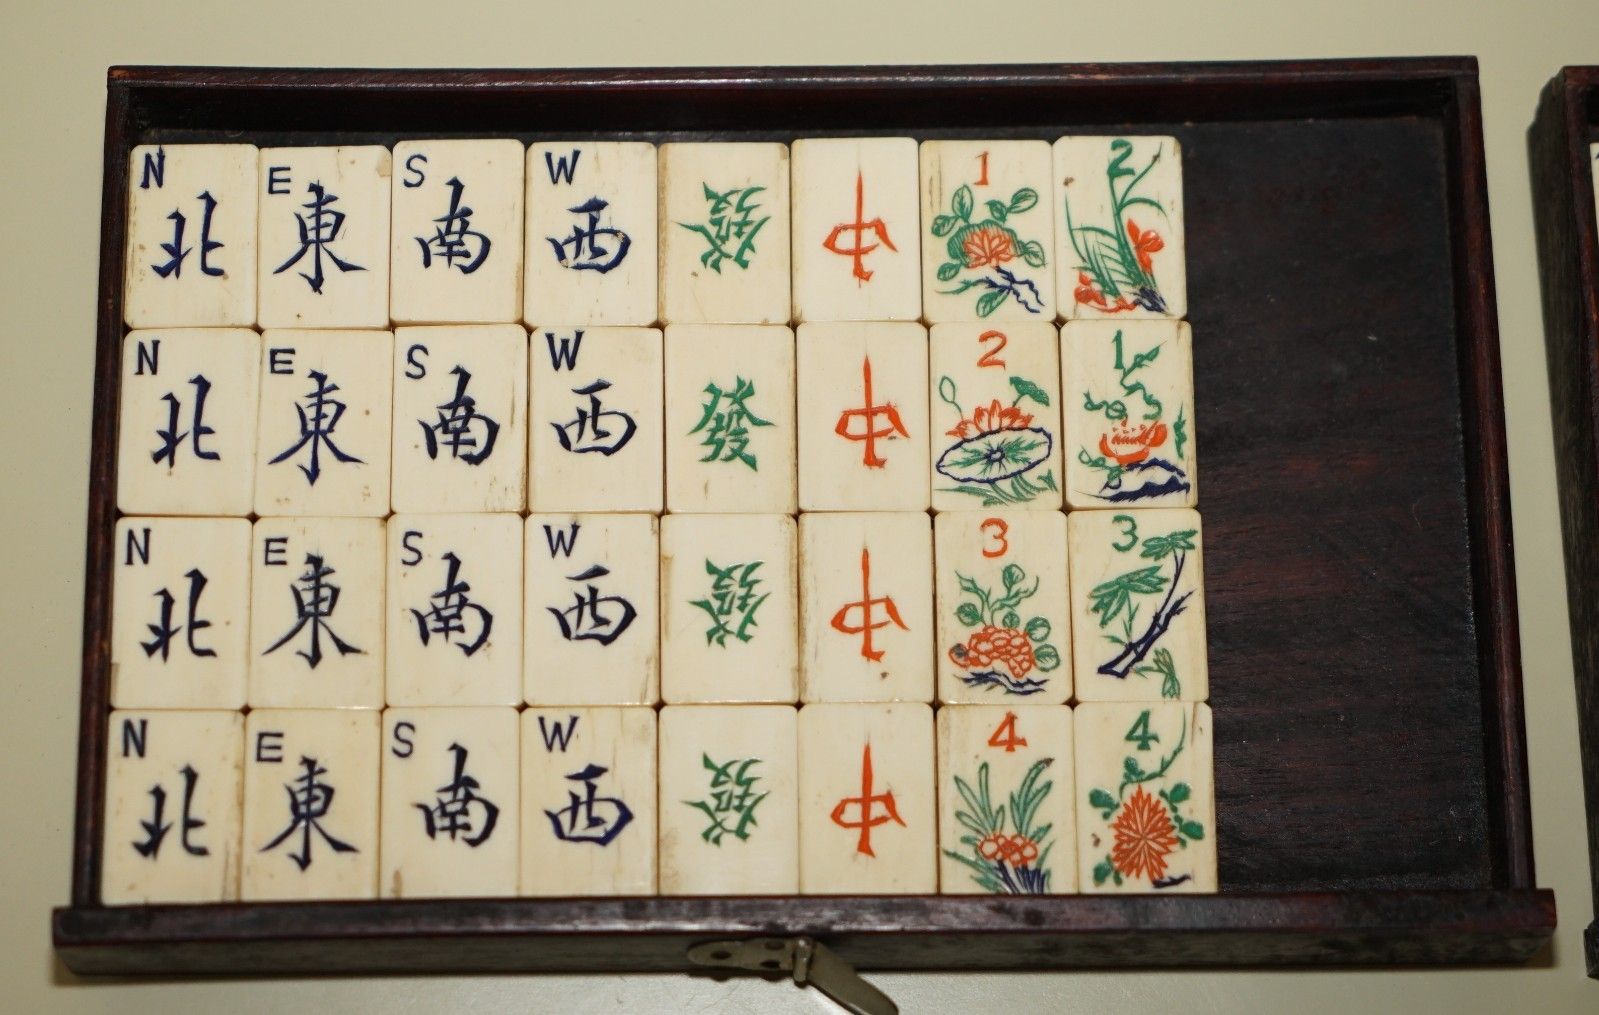 N 北 E 東 S 南 W 西 發 中 1 2
N 北 E 東 S 南 W 西 發 中 2 1
N 北 E 東 S 南 W 西 發 中 3 3
N 北 E 東 S 南 W 西 發 中 4 4